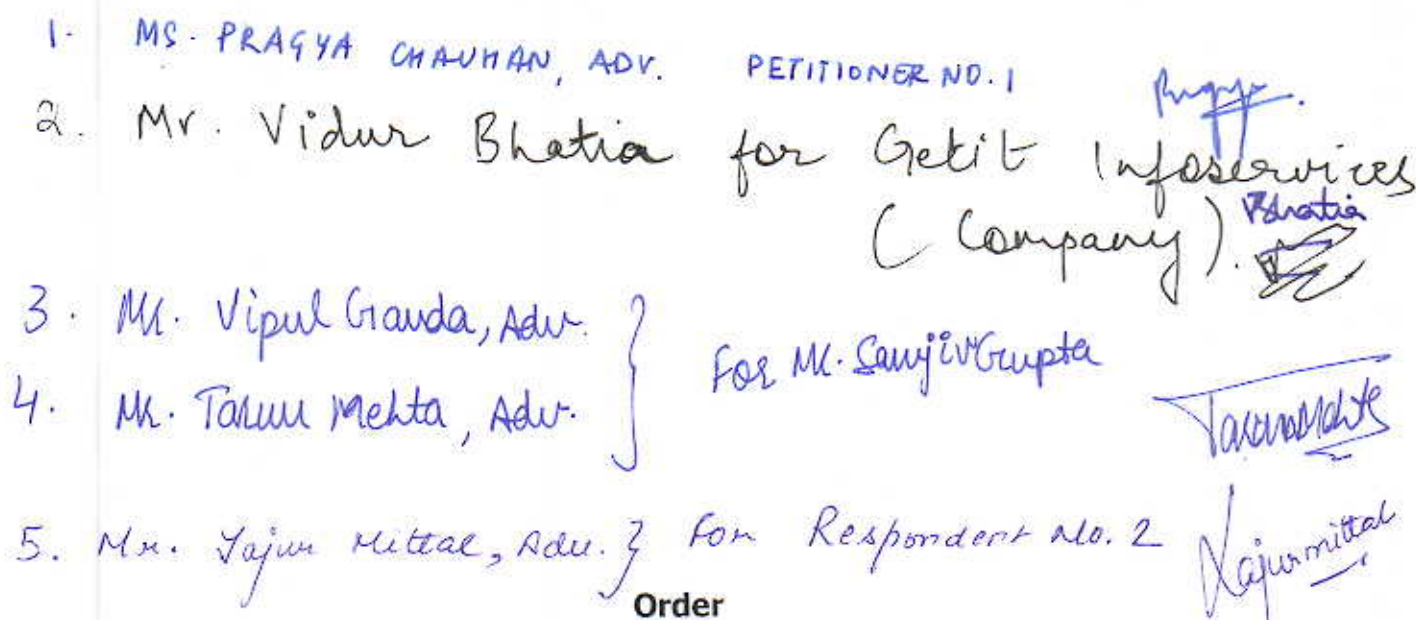 1. MS. PRAGYA CHAUHAN, ADV. PETITIONER NO. 1 Pragya
2. Mr. Vidur Bhatia for Getit Infoservices
(Company). Bhatia
3. Mr. Vipul Ganda, Adv.
4. Mr. Tarun Mehta, Adv. } For Mr. Sanjiv Gupta
Tarun Mehta
5. Mr. Yajur Mittal, Adv. } For Respondent No. 2 Yajur mittal
Order